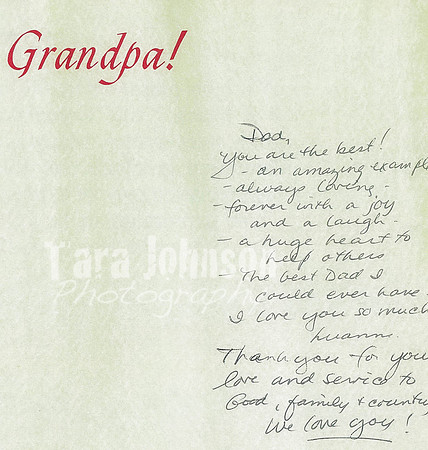 Grandpa!
Dad,
You are the best!
- an amazing exampl
- always loving -
- forever with a joy
and a laugh -
- a huge heart to
help others
- The best Dad I
could ever have -
I love you so much
Luann
Thank you for you
love and service to
God, family & countr
We love you!
Tara Johnson
Photograph